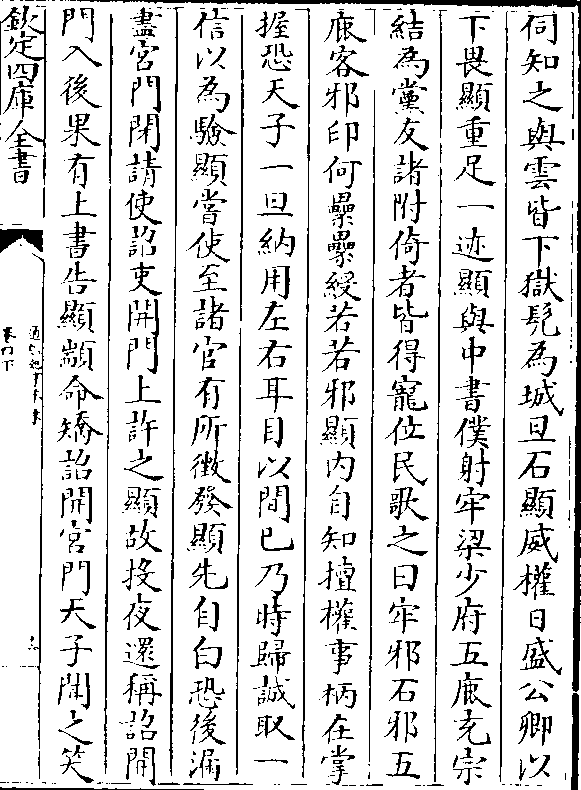 伺知之與雲皆下獄髠為城旦石顯威權日盛公卿以
下畏顯重足一迹顯與中書僕射牢梁少府五鹿充宗
結為黨友諸附倚者皆得寵位民歌之曰牢邪石邪五
鹿客邪印何纍纍綬若若邪顯内自知擅權事柄在掌
握恐天子一旦納用左右耳目以間已乃時歸誠取一
信以為驗顯嘗使至諸官有所徴發顯先自白恐後漏
盡宫門閉請使詔吏開門上許之顯故投夜還稱詔開
門入後果有上書告顯顓命矯詔開宫門天子聞之笑
欽定四庫全書